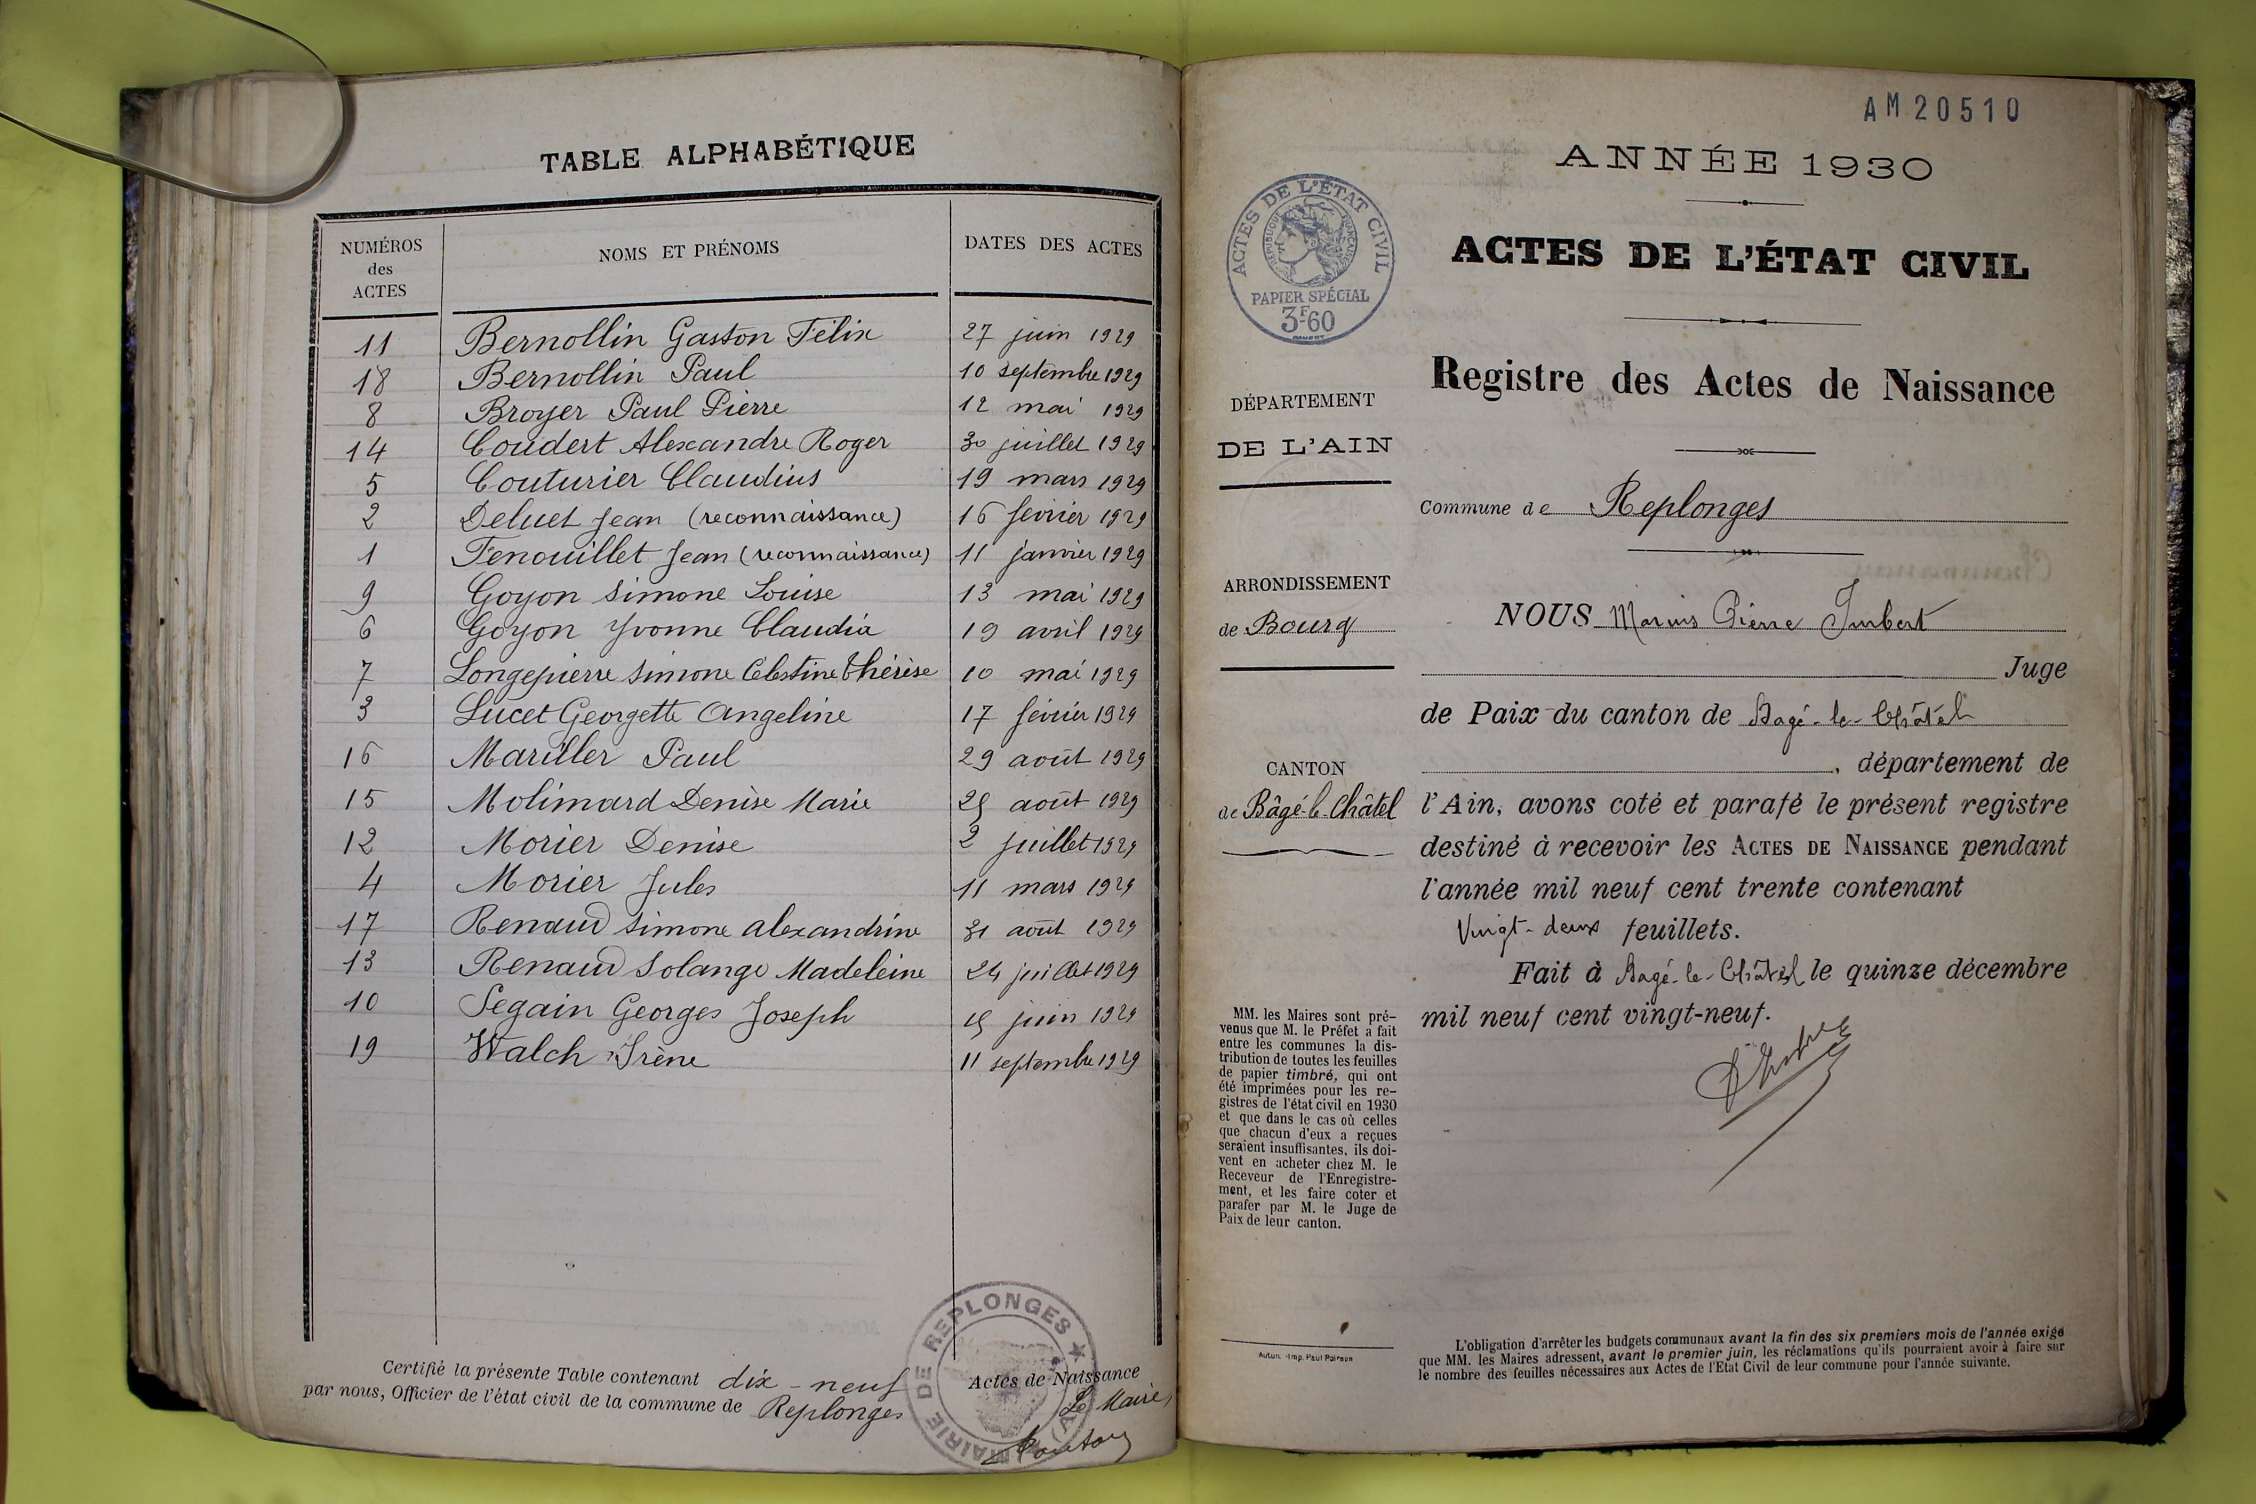 TABLE ALPHABÉTIQUE
NUMÉROS des ACTES NOMS ET PRÉNOMS DATES DES ACTES
11 Bernollin Gaston Félix 27 juin 1929
18 Bernollin Paul 10 septembre 1929
8 Broyer Paul Pierre 12 mai 1929
14 Coudert Alexandre Roger 30 juillet 1929
5 Couturier Claudius 19 mars 1929
2 Deluet Jean (reconnaissance) 16 février 1929
1 Fenouillet Jean (reconnaissance) 11 janvier 1929
9 Goyon Simone Louise 13 mai 1929
6 Goyon Yvonne Claudia 19 avril 1929
7 Longepierre Simone Célestine Thérèse 10 mai 1929
3 Lucet Georgette Angeline 17 février 1929
16 Mariller Paul 29 août 1929
15 Molimard Denise Marie août 1929
12 Morier Denise 2 juillet 1929
4 Morier Jules 11 mars 1929
17 Renaud Simone Alexandrine 31 août 1929
13 Renaud Solange Madeleine 24 juillet 1929
10 Segain Georges Joseph juin 1929
19 Walch Irène 11 septembre 1929
Certifié la présente Table contenant dix-neuf Actes de Naissance
par nous, Officier de l'état civil de la commune de Replonges
Le Maire,
MAIRIE DE REPLONGES
AM 20510
ANNÉE 1930
ACTES DE L'ÉTAT CIVIL
RÉPUBLIQUE FRANÇAISE
PAPIER SPÉCIAL
3F60
ACTES DE L'ÉTAT CIVIL
Registre des Actes de Naissance
DÉPARTEMENT
DE L'AIN
Commune de Replonges
ARRONDISSEMENT
de Bourg
CANTON
de Bâgé-le-Châtel
NOUS Marius Pierre Imbert
Juge
de Paix du canton de Bagé-le-Châtel
, département de
l'Ain, avons coté et parafé le présent registre
destiné à recevoir les ACTES DE NAISSANCE pendant
l'année mil neuf cent trente contenant
Vingt-deux feuillets.
Fait à Bagé-le-Châtel le quinze décembre
mil neuf cent vingt-neuf.
MM. les Maires sont pré-
venus que M. le Préfet a fait
entre les communes la dis-
tribution de toutes les feuilles
de papier timbré, qui ont
été imprimées pour les re-
gistres de l'état civil en 1930
et que dans le cas où celles
que chacun d'eux a reçues
seraient insuffisantes, ils doi-
vent en acheter chez M. le
Receveur de l'Enregistre-
ment, et les faire coter et
parafer par M. le Juge de
Paix de leur canton.
Autun. -Imp. Paul Poirson
L'obligation d'arrêter les budgets communaux avant la fin des six premiers mois de l'année exige
que MM. les Maires adressent, avant le premier juin, les réclamations qu'ils pourraient avoir à faire sur
le nombre des feuilles nécessaires aux Actes de l'Etat Civil de leur commune pour l'année suivante.